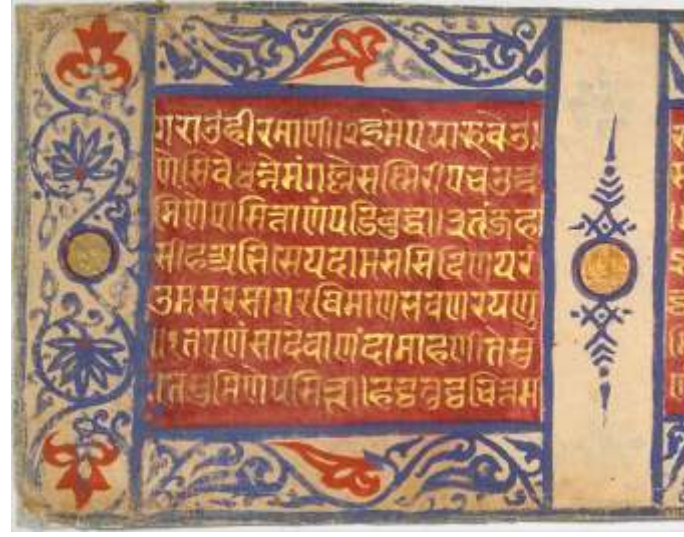 गराउहीरमाणी।२इमेएयारूवेउ
सिवेधन्नेमंगल्लेसस्सिरीएचउद्द
मिणेपासित्ताणंपडिबुद्धा।३तंजहा
सीहअभिसेयदामससिदिणयरं
उमसरसागरविमाणभवणरयणु
तएणंसादेवाणंदामाहणीतेसु
सुमिणेपासित्ताहट्ठतुट्ठचित्तम